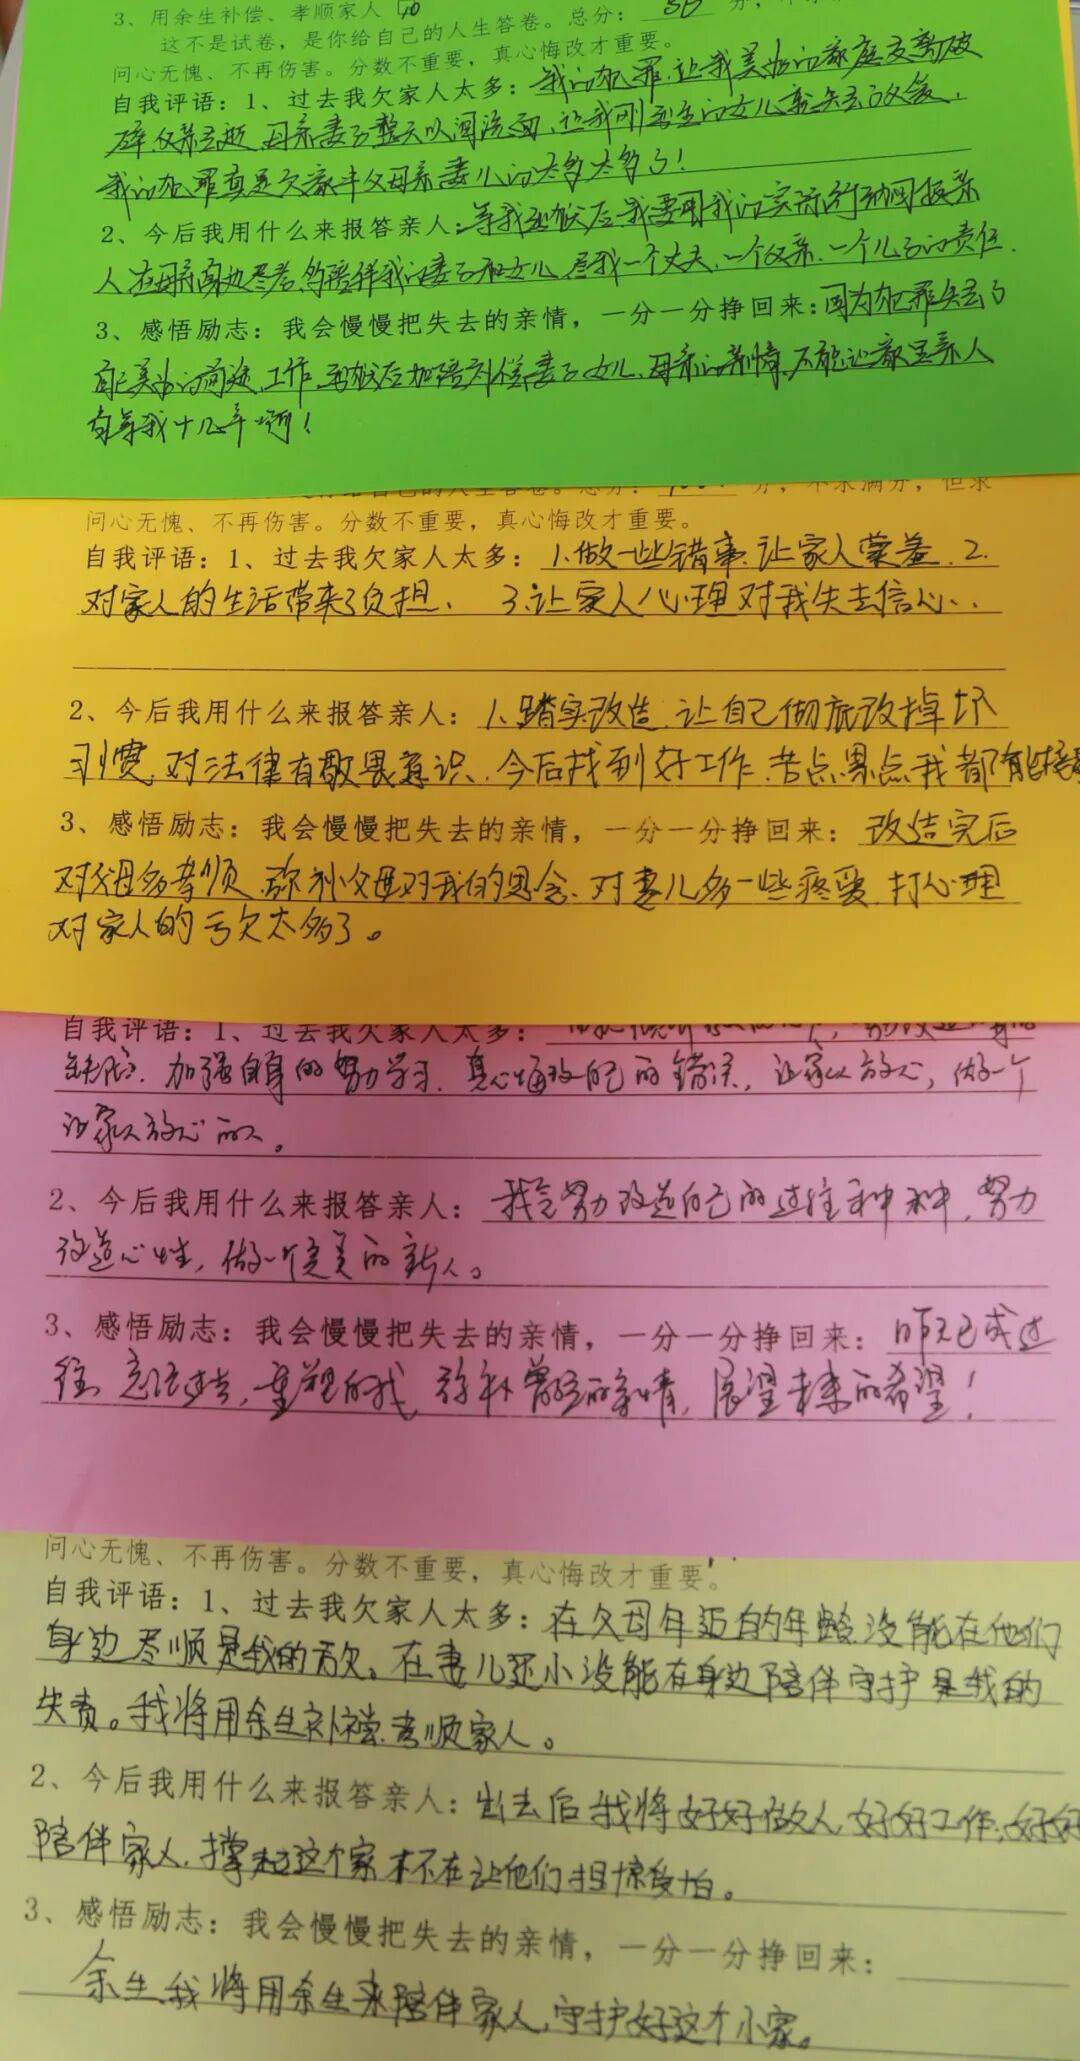 3、用余生补偿、孝顺家人 10
这不是试卷，是你给自己的人生答卷。总分： 30 分，
问心无愧、不再伤害。分数不重要，真心悔改才重要。
自我评语：1、过去我欠家人太多：我的犯罪,让我美好的家庭支离破
碎,父亲去逝,母亲妻子整天以泪洗面,让我刚出生的女儿就失去父爱,
我的犯罪真是欠家中父母亲妻儿的太多太多了!
2、今后我用什么来报答亲人：等我出狱后,我要用我的实际行动回报亲
人在母亲身边尽孝,陪伴我的妻子和女儿,尽我一个丈夫,一个父亲,一个儿子的责任.
3、感悟励志：我会慢慢把失去的亲情，一分一分挣回来：因为犯罪失去了
自己美好的前途,工作,出狱后加倍对妻子女儿,母亲的亲情,不能让家里亲人
白等我十几年啊!
问心无愧、不再伤害。分数不重要，真心悔改才重要。
自我评语：1、过去我欠家人太多：1.做一些错事,让家人蒙羞.2.
对家人的生活带来了负担、3.让家人心理对我失去信心..
2、今后我用什么来报答亲人：1.踏实改造,让自己彻底改掉坏
习惯,对法律有敬畏意识.今后找到好工作.苦点累点我都能接
3、感悟励志：我会慢慢把失去的亲情，一分一分挣回来：改造完后
对父母多孝顺,弥补父母对我的思念.对妻儿多一些疼爱,打心理
对家人的亏欠太多了。
自我评语：1、过去我欠家人太多：
缺陷.加强自身的努力学习.真心悔改自己的错误,让家人放心,做一个
让家人放心的人。
2、今后我用什么来报答亲人：我会努力改造自己的过往种种,努力
改造心性,做一个完美的新人。
3、感悟励志：我会慢慢把失去的亲情，一分一分挣回来：昨天已成过
往,忘记过去,重塑的我,弥补曾经的亲情,展望未来的希望!
问心无愧、不再伤害。分数不重要，真心悔改才重要。
自我评语：1、过去我欠家人太多：在父母年迈的年龄没能在他们
身边尽顺是我的亏欠。在妻儿还小没能在身边陪伴守护是我的
失责。我将用余生补偿.孝顺家人。
2、今后我用什么来报答亲人：出去后我将好好做人,好好工作,好好
陪伴家人.撑起这个家.不在让他们担惊受怕。
3、感悟励志：我会慢慢把失去的亲情，一分一分挣回来：
余生,我将用余生来陪伴家人,守护好这个小家。